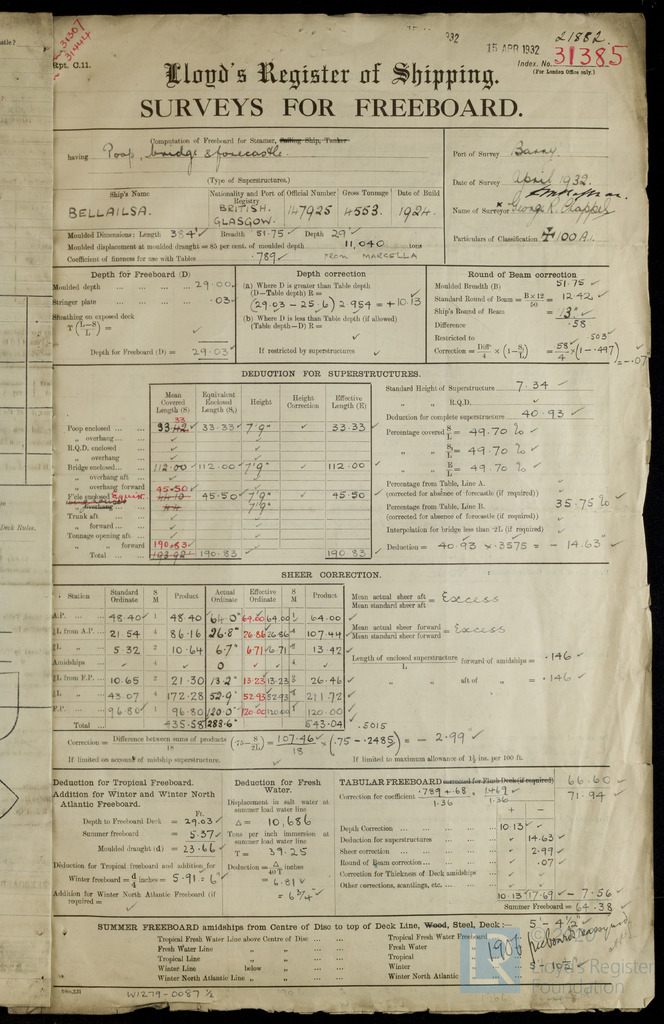 21882
15 APR 1932
Index. No. 31385
(For London Office only.)
Rpt. C.11.
Lloyd's Register of Shipping.
SURVEYS FOR FREEBOARD.
Computation of Freeboard for Steamer, Sailing Ship, Tanker
having Poop, bridge & forecastle.
(Type of Superstructures.)
Port of Survey Barry.
Date of Survey April 1932.
Name of Surveyor George R. Clapper
Particulars of Classification ✠ 100 A1.
Ship's Name
Nationality and Port of Registry
Official Number
Gross Tonnage
Date of Build
BELLAILSA.
BRITISH. GLASGOW.
147925
4553
1924.
Moulded Dimensions: Length 384' Breadth 51.75 Depth 29'
Moulded displacement at moulded draught = 85 per cent. of moulded depth 11,040 tons
Coefficient of fineness for use with Tables .789 FROM MARCELLA
Depth for Freeboard (D)
Moulded depth ... 29.00
Stringer plate ... .03
Sheathing on exposed deck
T (L-S/L) =
Depth for Freeboard (D) = 29.03
Depth correction
(a) Where D is greater than Table depth
(D-Table depth) R =
(29.03 - 25.6) 2.954 = + 10.13
(b) Where D is less than Table depth (if allowed)
(Table depth-D) R =
If restricted by superstructures
Round of Beam correction
Moulded Breadth (B) 51.75
Standard Round of Beam = B×12/50 = 12.42
Ship's Round of Beam = 13"
Difference .58
Restricted to .503
Correction = Diff/4 × (1-S1/L) = .58/4 × (1-.497) = -.07
DEDUCTION FOR SUPERSTRUCTURES.
Mean Covered Length (S)
Equivalent Enclosed Length (S1)
Height
Height Correction
Effective Length (E)
Poop enclosed ... 33.42 33 33.33 7'9" 33.33
„ overhang ...
R.Q.D. enclosed
„ overhang
Bridge enclosed... 112.00 112.00 7'9" 112.00
„ overhang aft
„ overhang forward
F'cle enclosed Equiv. 45.50 45.50 7'9" 45.50
„ overhang 7'9"
Trunk aft
„ forward ...
Tonnage opening aft
„ „ forward 190.83
Total ... 193.92 190.83 190.83
Standard Height of Superstructure 7.34
„ „ R.Q.D.
Deduction for complete superstructure 40.93
Percentage covered S/L = 49.70 %
„ „ S1/L = 49.70 %
„ „ E/L = 49.70 %
Percentage from Table, Line A.
(corrected for absence of forecastle (if required))
Percentage from Table, Line B. 35.75 %
(corrected for absence of forecastle (if required))
Interpolation for bridge less than ·2L (if required)
Deduction = 40.93 × .3575 = - 14.63"
SHEER CORRECTION.
Station
Standard Ordinate
S M
Product
Actual Ordinate
Effective Ordinate
S M
Product
A.P. ... 48.40 1 48.40 64.0" 64.00 64.00 1 64.00
⅙L from A.P. ... 21.54 4 86.16 26.8" 26.86 26.86 4 107.44
⅓L „ 5.32 2 10.64 6.7" 6.71 6.71 2 13.42
Amidships 4 0 4
⅓L from F.P. ... 10.65 2 21.30 13.2" 13.23 13.23 2 26.46
⅙L „ 43.07 4 172.28 52.9" 52.93 52.93 4 211.72
F.P. ... 96.80 1 96.80 120.0" 120.00 120.00 1 120.00
Total ... 435.58 283.6" 543.04
Mean actual sheer aft / Mean standard sheer aft = Excess
Mean actual sheer forward / Mean standard sheer forward = Excess
Length of enclosed superstructure / L forward of amidships = .146
„ „ aft of „ = .146
.5015
Correction = Difference between sums of products/18 (.75-S/2L) = 107.46/18 × (.75 - .2485) = - 2.99"
If limited on account of midship superstructure.
If limited to maximum allowance of 1½ ins. per 100 ft.
Deduction for Tropical Freeboard.
Addition for Winter and Winter North Atlantic Freeboard.
Ft.
Depth to Freeboard Deck = 29.03
Summer freeboard = 5.37
Moulded draught (d) = 23.66
Deduction for Tropical freeboard and addition for
Winter freeboard = d/4 inches = 5.91 = 6"
Addition for Winter North Atlantic Freeboard (if required =
Deduction for Fresh Water.
Displacement in salt water at summer load water line
Δ = 10,686
Tons per inch immersion at summer load water line
T = 39.25
Deduction = Δ/40T inches
= 6.81
= 6¾"
TABULAR FREEBOARD corrected for Flush Deck (if required) 66.60
Correction for coefficient .789 + .68 / 1.36 = 1.469 / 1.36 71.94
+ -
Depth Correction ... 10.13
Deduction for superstructures 14.63
Sheer correction ... 2.99
Round of Beam correction... .07
Correction for Thickness of Deck amidships
Other corrections, scantlings, etc. ...
10.13 17.69 - 7.56
Summer Freeboard = 64.38
SUMMER FREEBOARD amidships from Centre of Disc to top of Deck Line, Wood, Steel, Deck:— 5' - 4½"
Tropical Fresh Water Line above Centre of Disc ...
Fresh Water Line „ „ ...
Tropical Line „ „ ...
Winter Line below „ ...
Winter North Atlantic Line „ „ ...
Tropical Fresh Water Freeboard
Fresh Water „
Tropical „
Winter „
Winter North Atlantic „
1906 freeboard
W1279-0087 ½
Lloyd's Register
Foundation